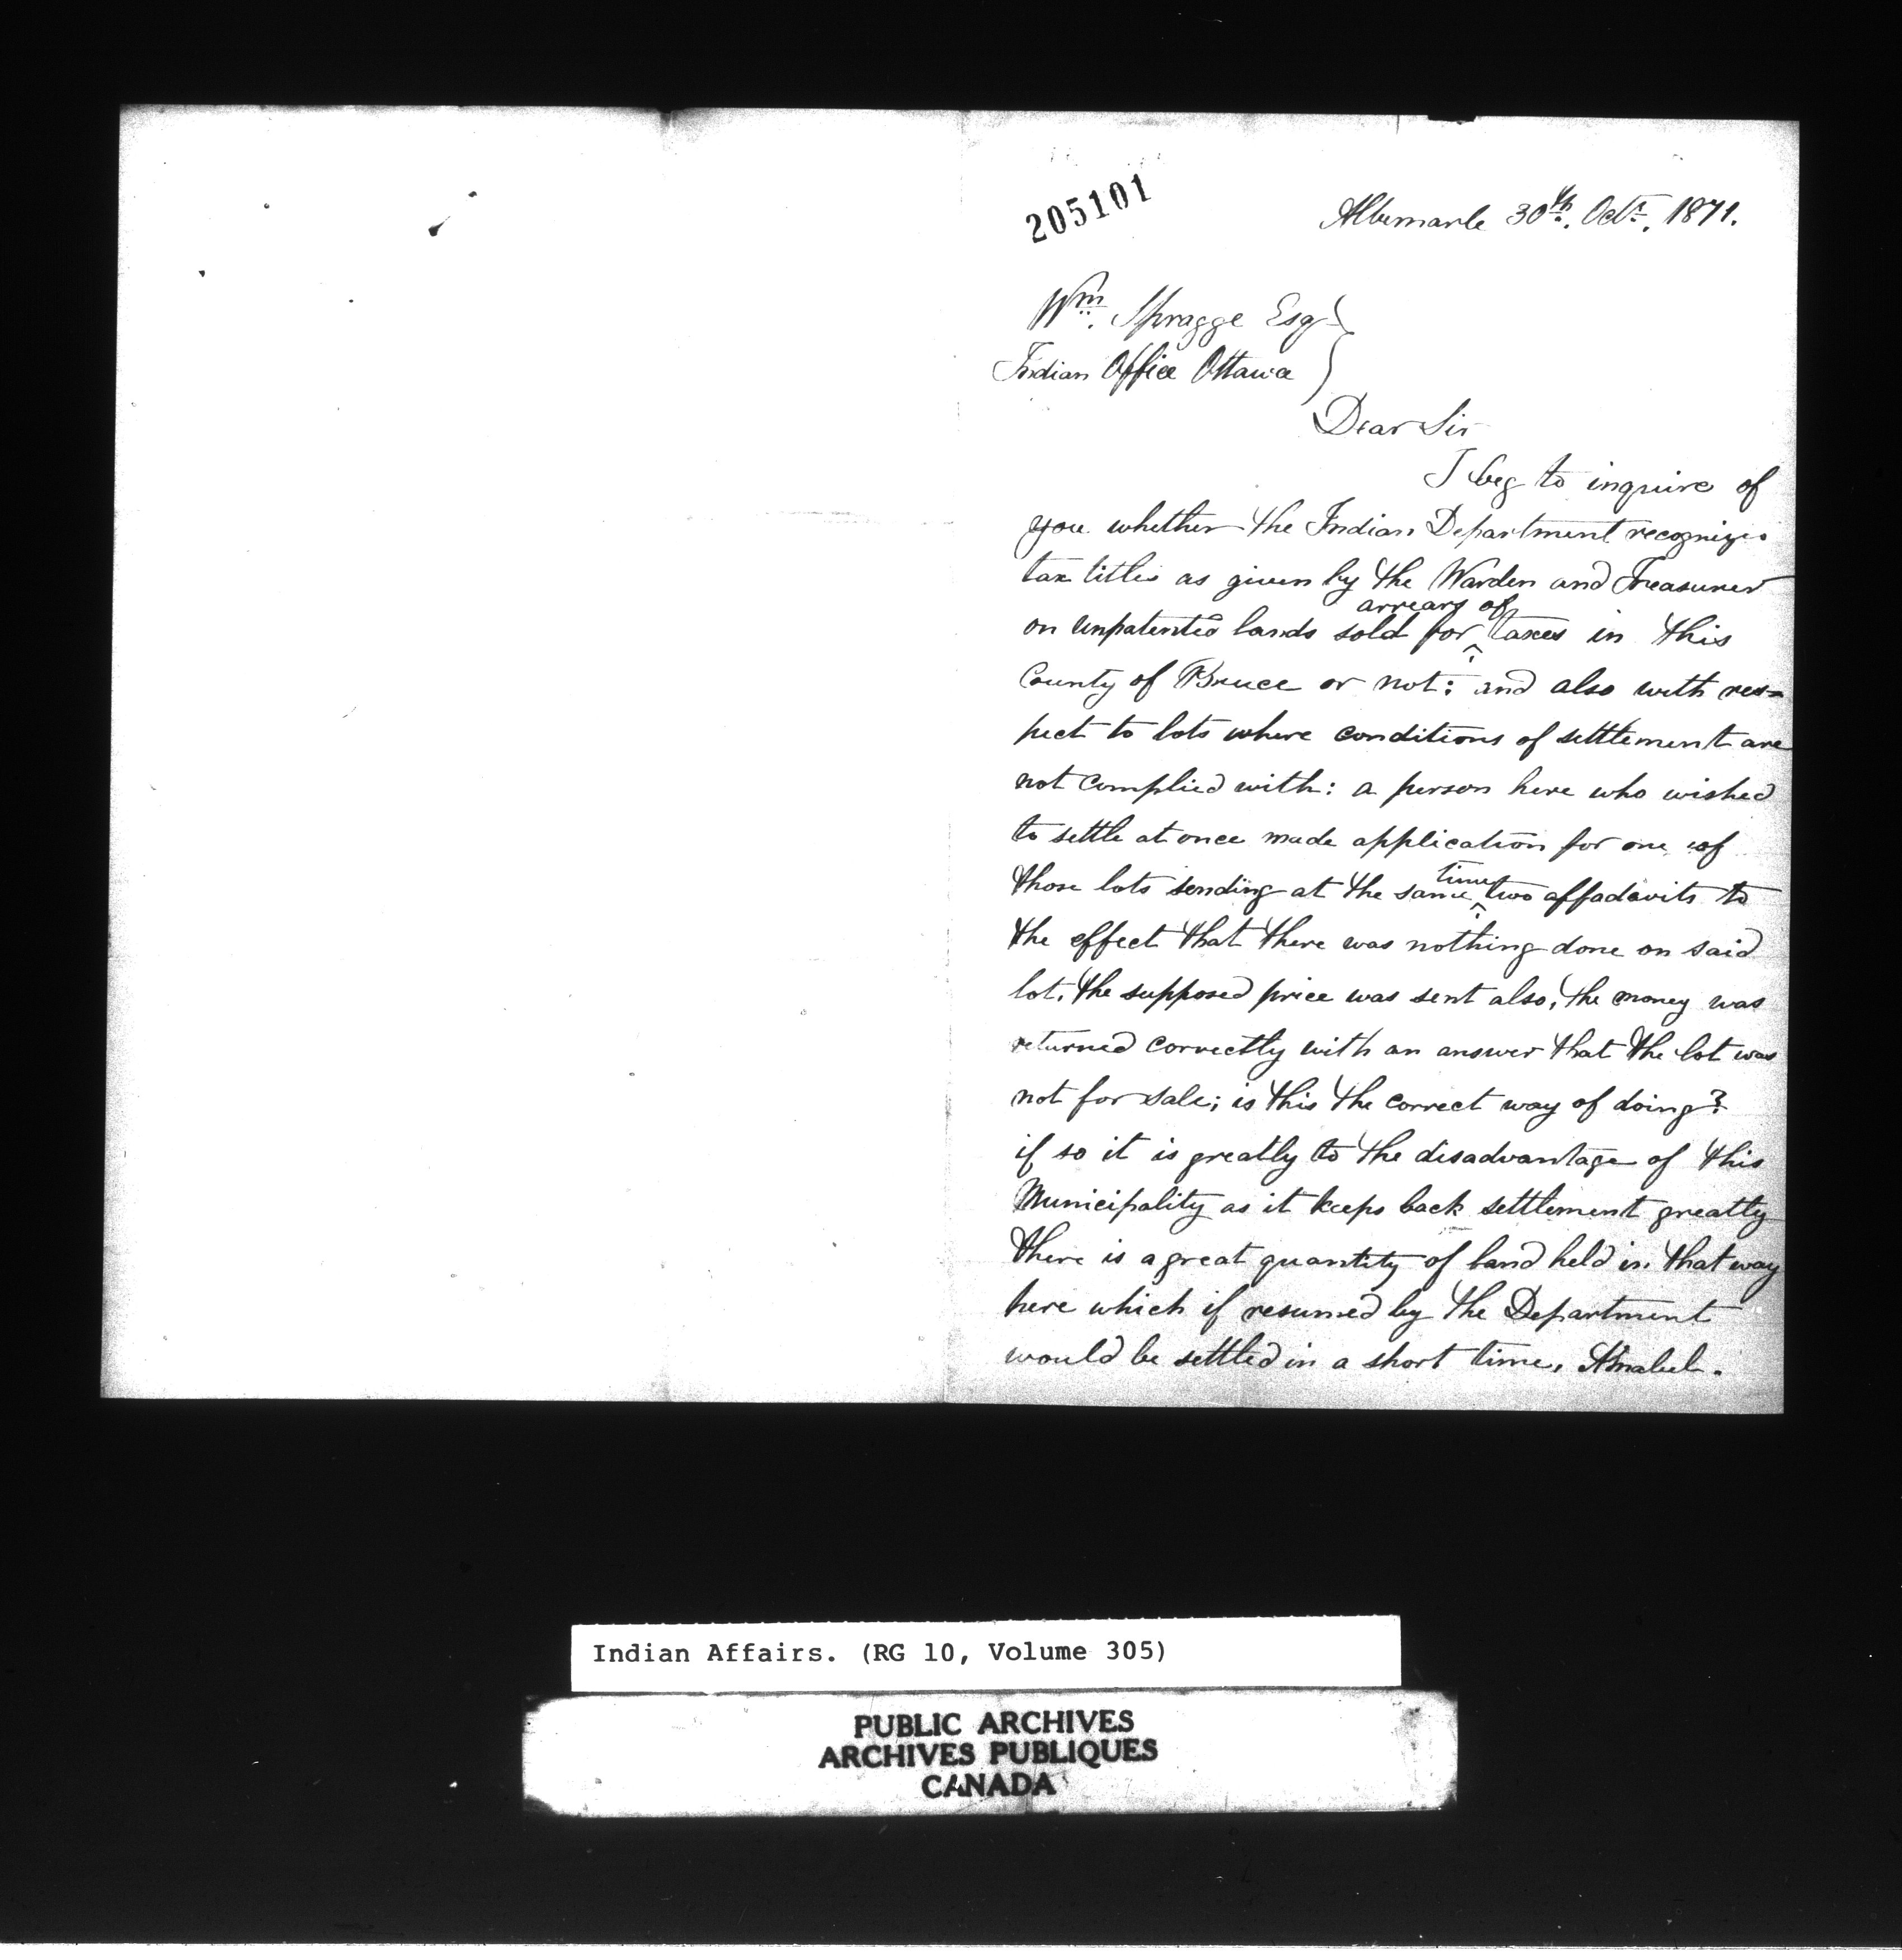 205101
Albemarle 30th. Octr. 1871.
Wm. Spragge Esq
Indian Office Ottawa
Dear Sir
I beg to inquire of
you whether the Indian Department recognizes
tax titles as given by the Warden and Treasurer
on unpatented lands sold for arrears of taxes in this
County of Bruce or not: and also with res=
pect to lots where conditions of settlement are
not complied with: a person here who wished
to settle at once made application for one of
those lots sending at the same time two affadavits to
the effect that there was nothing done on said
lot, the supposed price was sent also, the money was
returned correctly with an answer that the lot was
not for sale; is this the correct way of doing?
if so it is greatly to the disadvantage of this
Municipality as it keeps back settlement greatly
there is a great quantity of land held in that way
here which if resumed by the Department
would be settled in a short time, Amabel.
Indian Affairs. (RG 10, Volume 305)
PUBLIC ARCHIVES
ARCHIVES PUBLIQUES
CANADA